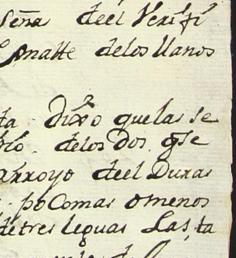 Seña deel Verifi
Conatte delos llanos
ta dixo quelas se
delos dos qe se
arroyo deel Duras
poComas omenos
detres leguas Las, ta